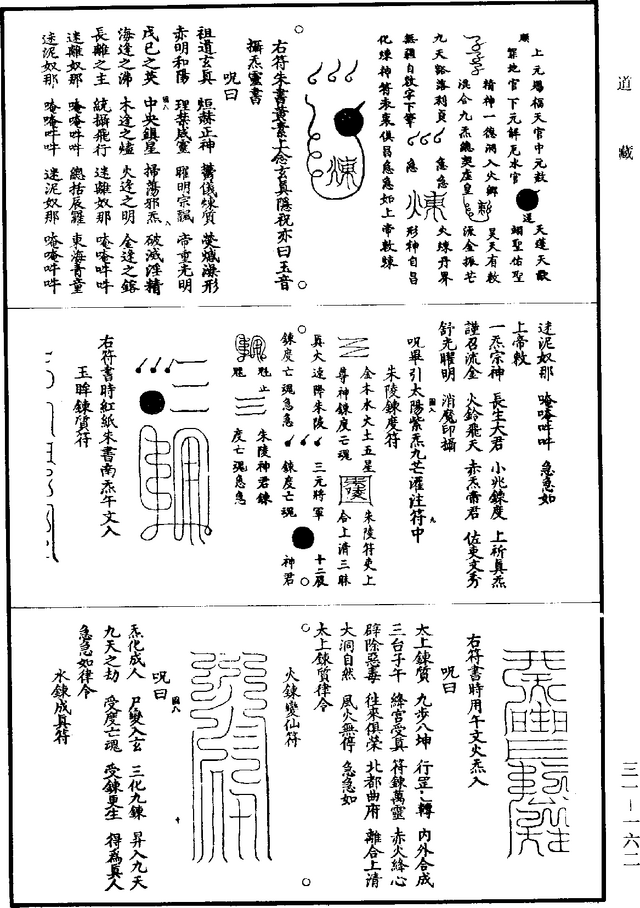 道藏
上元賜福天官中元赦
罪地官下元解厄水官
天蓬天猷
翊聖佑聖
精神一德洞入火鄉
昊天有敕
混合九炁總契虛皇
流金振芒
九天谿落利貞
急急
火煉丹界
無礙自教字下筆
急
形神自昌
化煉神符來裹俱昌急急如上帝敕煉
煉
右符朱書黃素上念玄真隱祝亦曰玉音
攝炁靈書
呪曰
祖道玄真 烜赫正神 鬱儀煉質 熒熾瀑形
赤明和陽 理禁威靈 曜明宗飄 帝重光明
戊巳之英 中央鎮星 掃蕩邪炁 破滅淫精
海逵之沸 木逵之爐 火逵之明 金逵之鎔
長離之主 統攝飛行 迷離奴那 唵唵吽吽
迷離奴那 唵唵吽吽 總括辰羅 東海青童
迷泥奴那 唵唵吽吽 迷泥奴那 唵唵吽吽
迷泥奴那 唵唵吽吽 急急如
上帝敕
一炁宗神 長生大君 小兆鍊度 上祈真炁
謹召流金 火鈴飛天 赤炁帝君 佐東文秀
舒光曜明 消魔印攝
呪畢引太陽紫炁九芒灌注符中
朱陵鍊度符
金木水火土五星
朱陵符吏上
尊神鍊度亡魂
合上清三昧
真火速降朱陵
三元將軍
十二辰
鍊度亡魂急急
鍊度亡魂
神君
魁
止
朱陵神君鍊
魁
度亡魂急急
右符書時紅紙朱書南炁午文入
玉眸鍊質符
右符書時用午文火炁入
呪曰
太上鍊質 九步八坤 行罡一轉 內外合成
三台子午 絳宮受真 符鍊萬靈 赤火絳心
辟除惡毒 往來俱榮 北都曲府 離合上清
大洞自然 風火無停 急急如
太上鍊質律令
火鍊變仙符
呪曰
炁化成人 尸變入玄 三化九鍊 昇入九天
九天之劫 受度亡魂 受鍊更生 得為真人
急急如律令
水鍊成真符
三一—一六二